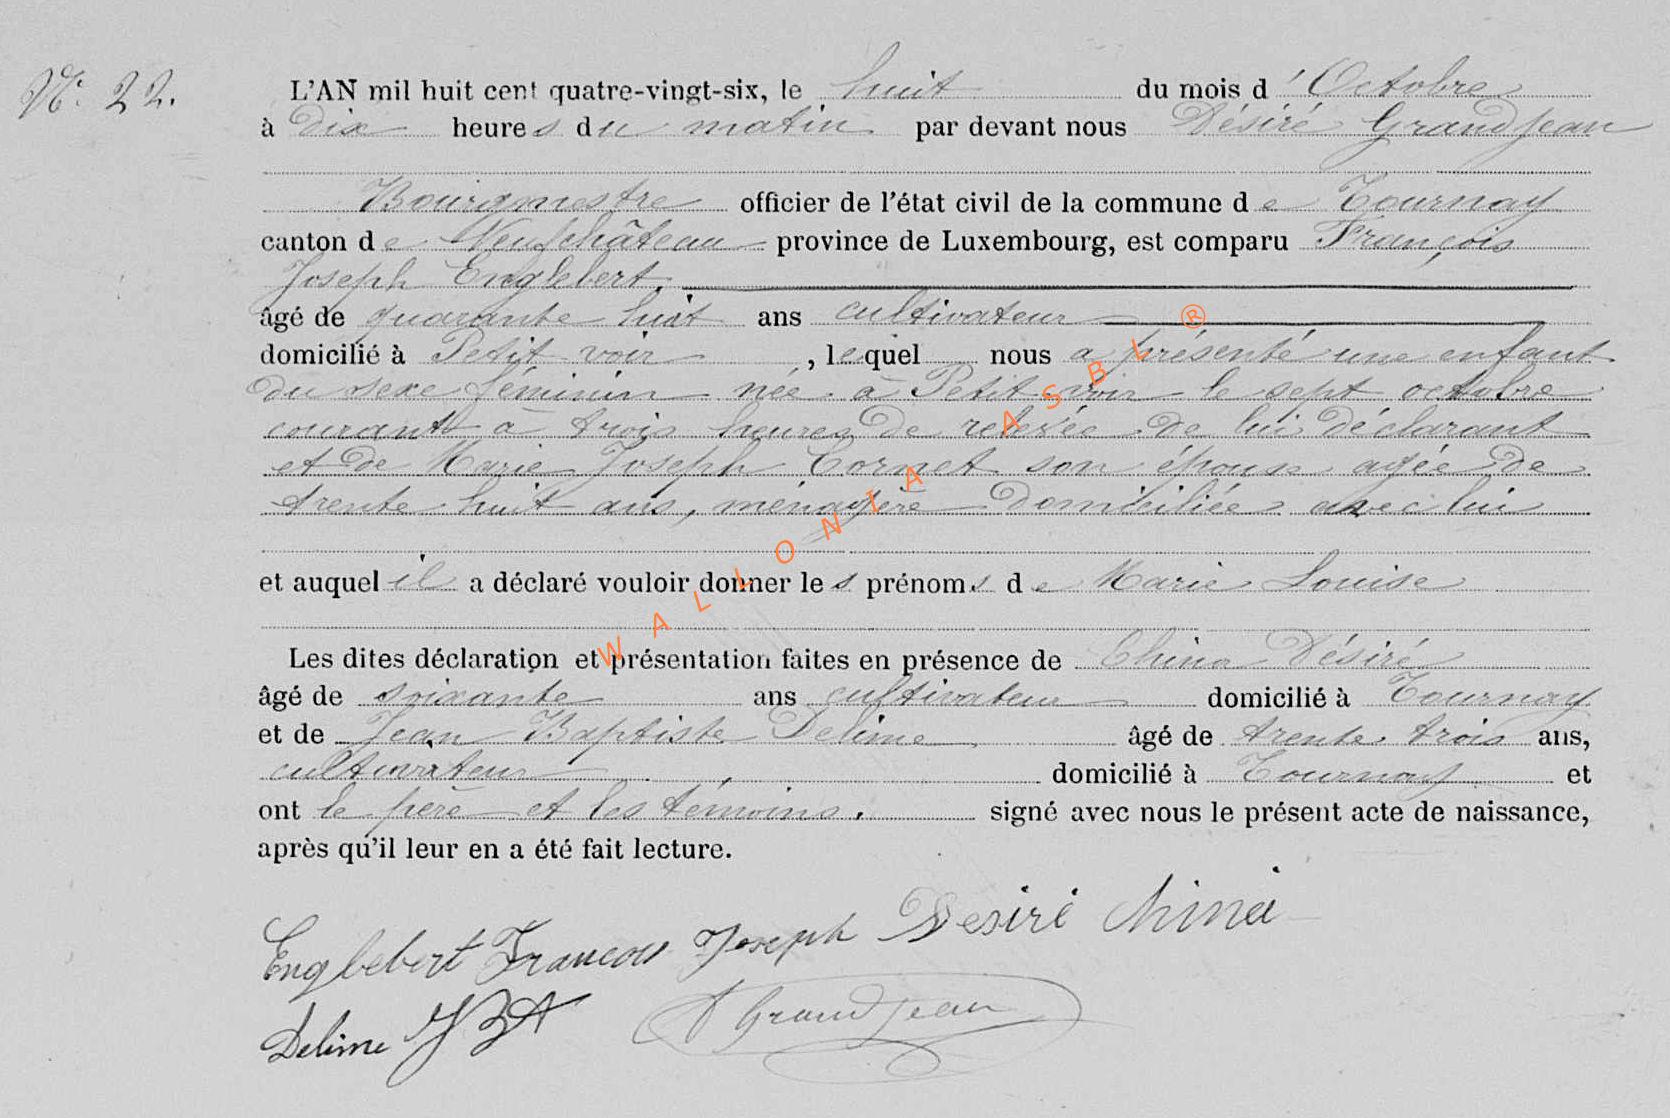 N° 22.
L'AN mil huit cent quatre-vingt-six, le huit du mois d'Octobre
à Dix heures du matin par devant nous Désiré Grandjean
Bourgmestre officier de l'état civil de la commune de Tournay
canton de Neufchâteau province de Luxembourg, est comparu François
Joseph Englebert.
âgé de quarante huit ans cultivateur
domicilié à Petit voir, lequel nous a présenté une enfant
du sexe féminin née à Petit voir le sept octobre
courant à trois heures de relevée de lui déclarant
et de Marie Joseph Cornet son épouse agée de
trente huit ans, ménagère domiciliée avec lui
et auquel il a déclaré vouloir donner les prénoms de Marie Louise
Les dites déclaration et présentation faites en présence de China Désiré
âgé de soixante ans cultivateur domicilié à Tournay
et de Jean Baptiste Delime âgé de trente trois ans,
cultivateur, domicilié à Tournay et
ont le père et les témoins. signé avec nous le présent acte de naissance,
après qu'il leur en a été fait lecture.
Englebert Francois Joseph Desiré
Delime JBt Grandjean
WALLONIA ASBL ®